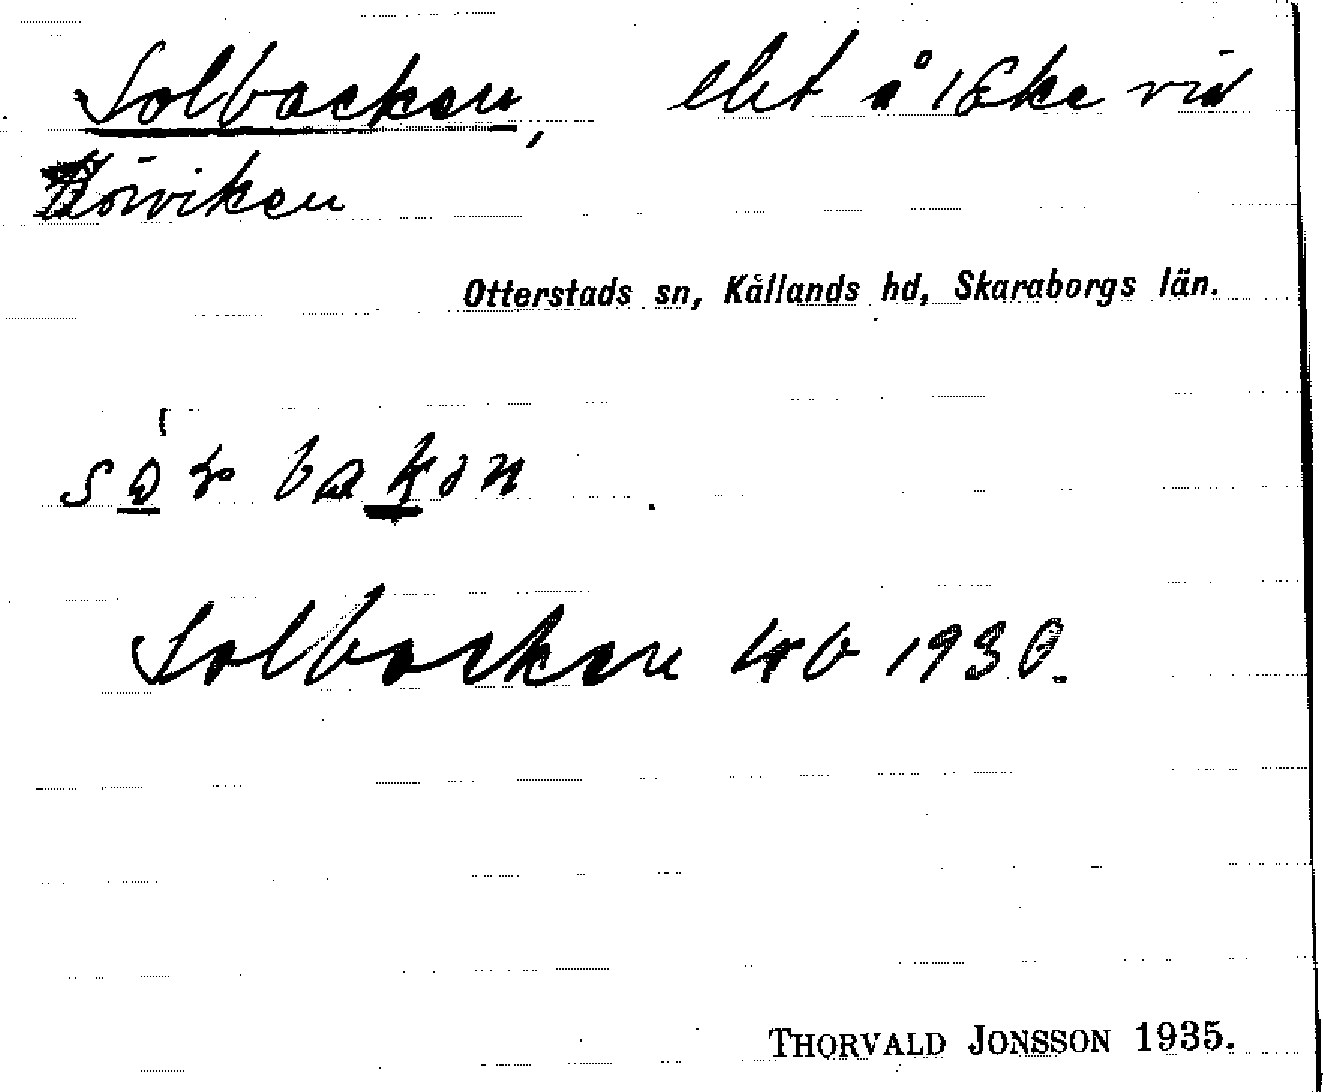 Solbacken, lht å Ekc vid
Törviken
Otterstads sn, Kållands hd, Skaraborgs län.
Solbacken Kb 1930.
THORVALD JONSSON 1935.